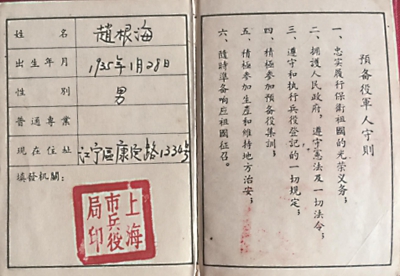 姓名 趙根海
出生年月 1935年1月28日
性別 男
普通專業
現在住址 江宁區康定路1334号
填發机關：
上海
市兵役
局印
預备役軍人守則
一、忠实履行保衛祖國的光荣义务；
二、擁護人民政府，遵守憲法及一切法令；
三、遵守和执行兵役登記的一切規定；
四、積極参加預备役集訓；
五、積極参加生產和維持地方治安；
六、隨時準备响应祖國征召。